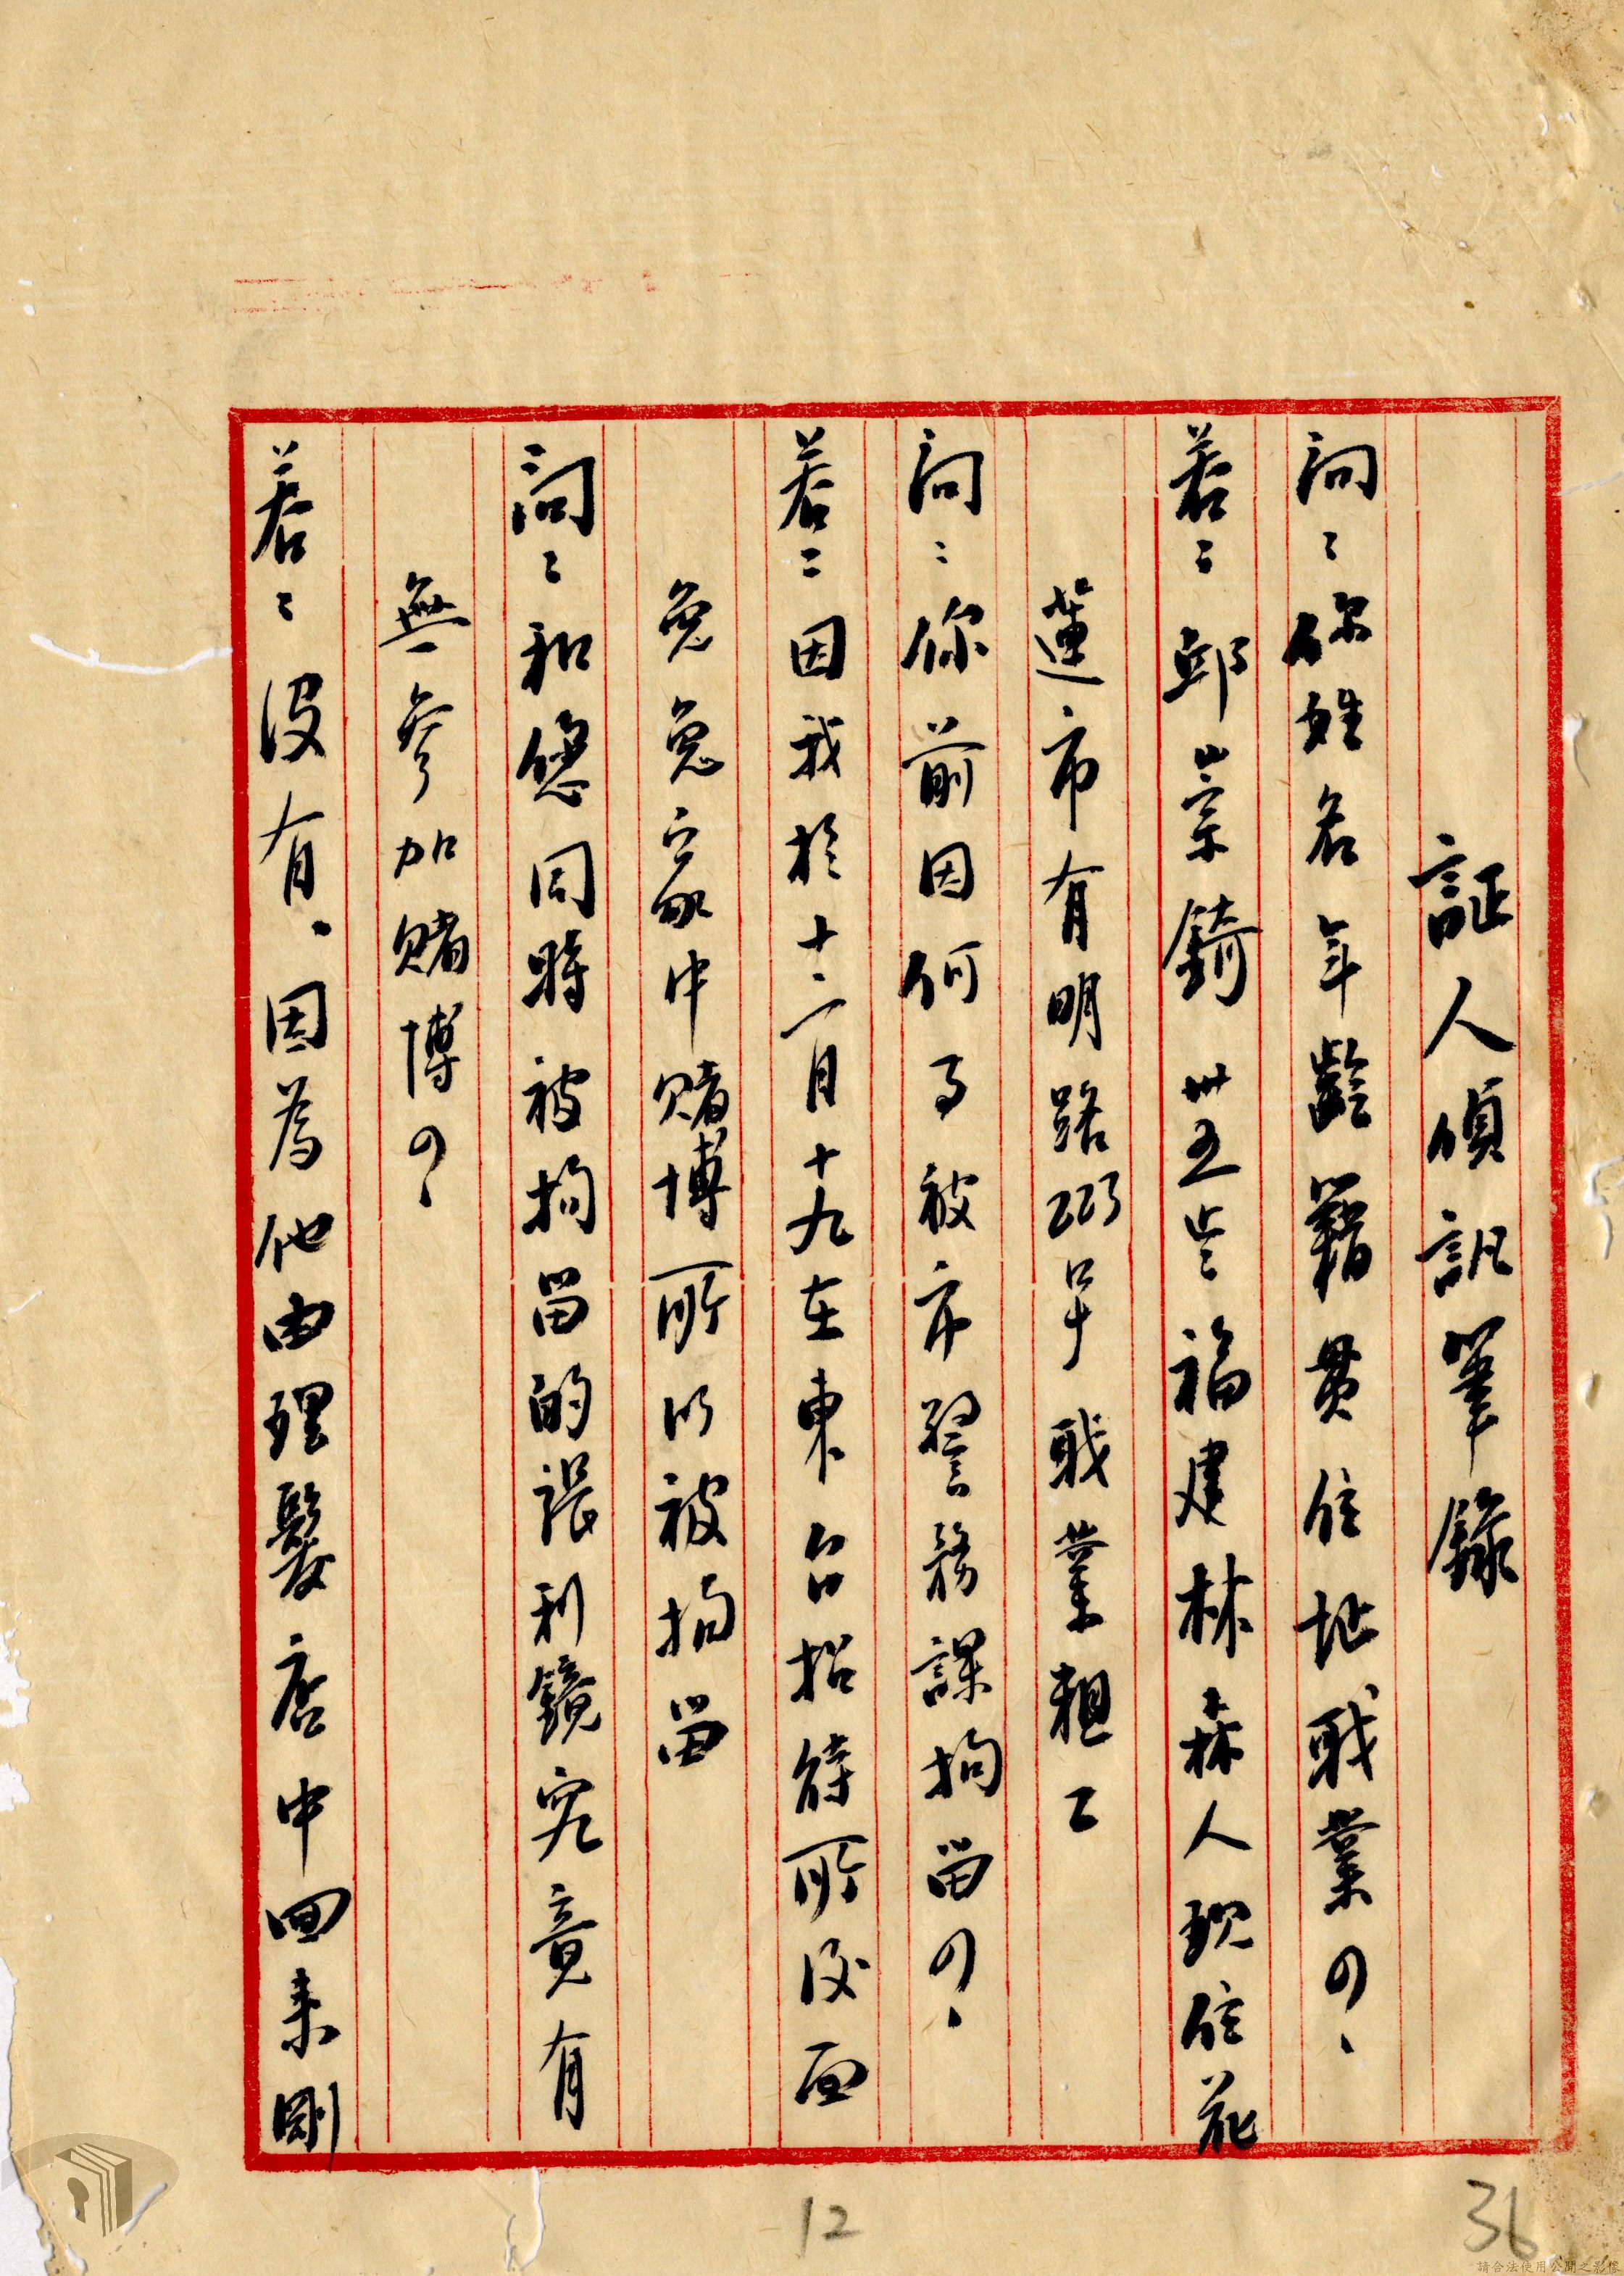 証人偵訊筆錄
問:你姓名年齡籍貫住址职業の、
答:邱崇錡 卅五岁福建林森人現住花
蓮市有明路223号职業粗工
問:你前因何事被市警務課拘留の、
答:因我於十二月十九在東台招待所后面
兔兔家中賭博所以被拘留
問:和您同時被拘留的張利鏡究竟有
無參加賭博の、
答:沒有.因為他由理髮店中回来剛
12
36
請合法使用公開之影像